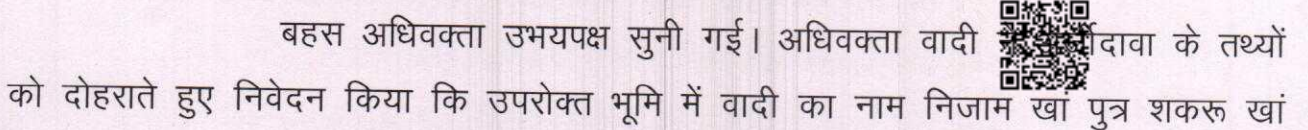 बहस अधिवक्ता उभयपक्ष सुनी गई। अधिवक्ता वादी के तथ्यों
को दोहराते हुए निवेदन किया कि उपरोक्त भूमि में वादी का नाम निजाम खां पुत्र शकरू खां